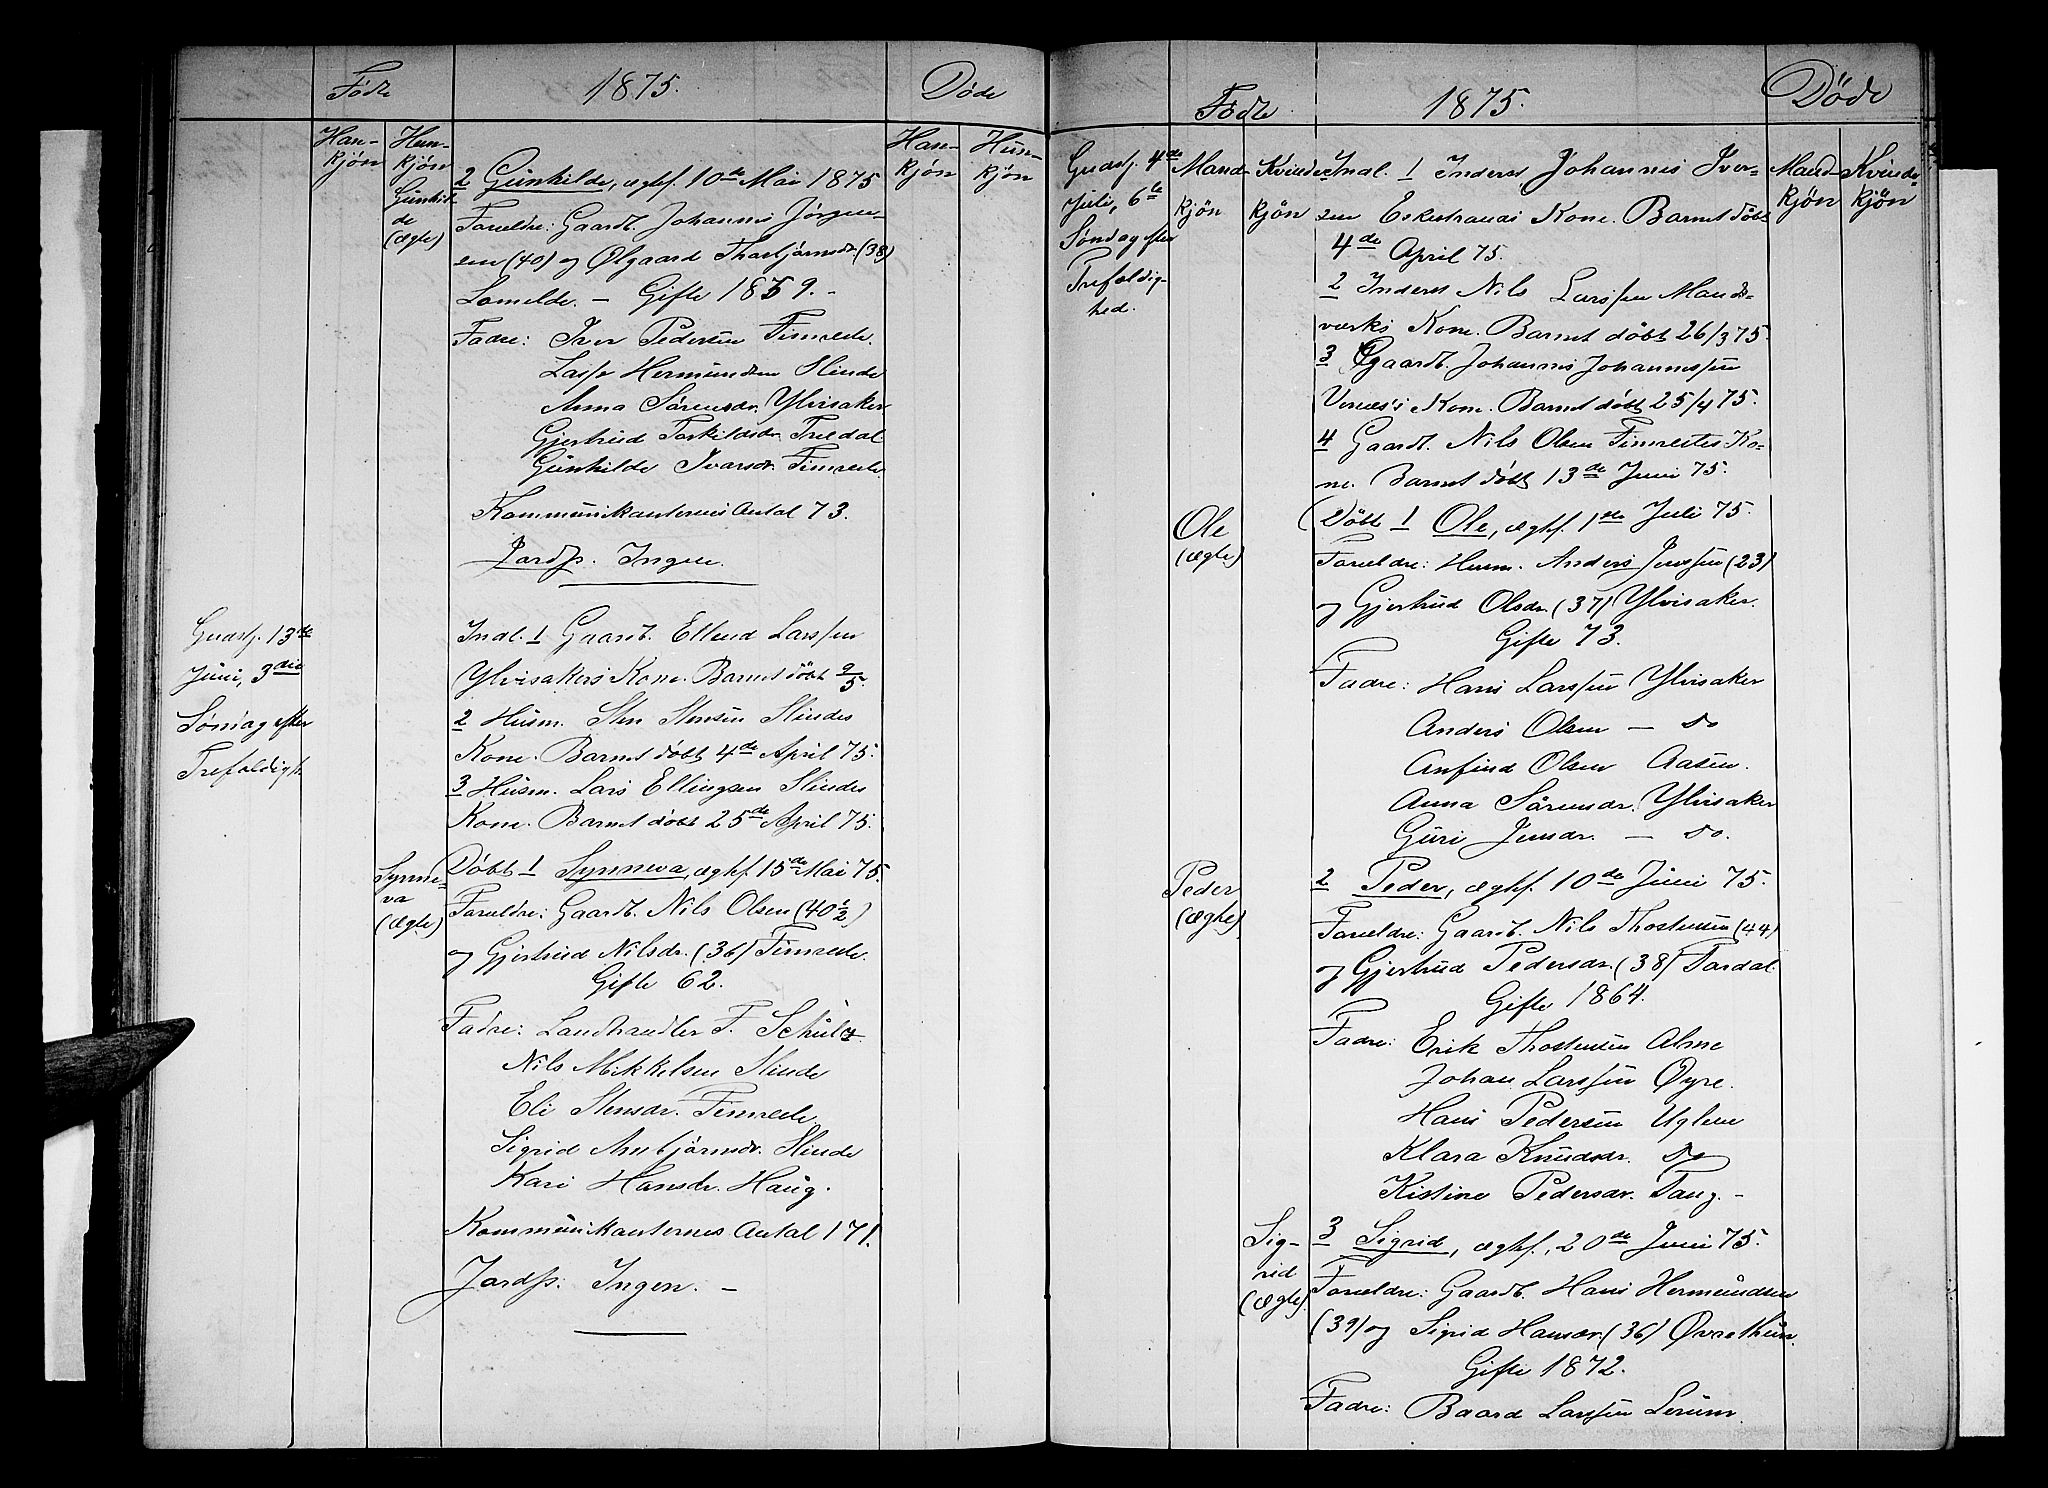 Fødte
1875.
Døde
Han-
kjön
Hun-
kjön
Han-
kjön
Hun-
kjön
Gunhil-
de
(ægte)
2 Gunhilde, ægtef. 10de Mai 1875
Forældre: Gaardb. Johannes Jörgen-
sen (40) og Ølgaard Thorbjörnsdr. (38)
Lomelde. – Gifte 1859. –
Fadre: Iver Pedersen Timrede.
Lasse Hermundsen Slinde
Anna Sörensdr. Ylvisaker
Gjertrud Torkildsdr.
Gunhilde Ivarsdr. Timrede.
Kommunikanternes Antal 73.
Jordfp. Ingen.
Gudstj. 13de
Juni, 3die
Söndag efter
Trefoldigh.
Indl. 1 Gaardb. Ellend Larssen
Ylvisakers Kone. Barnet döbt 9/5.
2 Husm. Sten Stensen Slindes
Kone. Barnet döbt 4de April 75.
3 Husm. Lars Ellingsen Slindes
Kone. Barnet döbt 25de April 75.
Synne-
va
(ægte)
Döbt 1 Synneva, ægtf. 15de Mai 75.
Forældre: Gaardb. Nils Olsen (40 1/2)
og Gjertrud Nilsdr. (36) Timrede.
Gifte 62.
Fadre: Landhandler F. Schultz
Nils Mikkelsen Slinde
Eli Stensdr. Timrede
Sigrid Anbjörnsdr. Slinde
Kari Hansdr. Haug.
Kommunikanternes Antal 171.
Jordfp: Ingen. –
Födte
1875.
Döde
Gudstj. 4de
Juli, 6te
Söndag efter
Trefoldig-
hed.
Mand-
kjön
Kvinde-
kjön
Mand-
kjön
Kvinde-
kjön
Indl. 1 Inderst Johannes Iver-
sen Eskestrands Kone. Barnet döbt
4de April 75.
2 Inderst Nils Larssen Mands-
værks Kone. Barnet döbt 26/3 75.
3 Gaardb. Johannes Johannessen
Kone. Barnet döbt 25/4 75.
4 Gaardb. Nils Olsen Timredes Ko-
ne. Barnet döbt 13de Juni 75.
Ole
(ægte)
Döbt 1 Ole, ægtf. 1ste Juli 75.
Forældre: Husm. Anders Jenssen (23)
og Gjertrud Olsdr. (37) Ylvisaker.
Gifte 73.
Fadre: Hans Larssen Ylvisaker
Anders Olsen – do
Anfind Olsen Aasen.
Anna Sörensdr. Ylvisaker
Guri Jensdr. – do.
Peder
(ægte)
2 Peder, ægtf. 10de Juni 75.
Forældre: Gaardb. Nils Thostensen (44)
og Gjertrud Pedersdr. (38) Tardal.
Gifte 1864.
Fadre: Erik Thostensen Alme
Johan Larssen Øyre.
Hans Pedersen Uglem
Klara Knudsdr. do
Kistine Pedersdr. Tang. –
Sig-
rid
(ægte)
3 Sigrid, ægtf., 20de Juni 75.
Forældre: Gaardb. Hans Hermundsen
(39) og Sigrid Hansdr. (36) Øvrethun.
Gifte 1872.
Fadre: Baard Larssen Lerum.